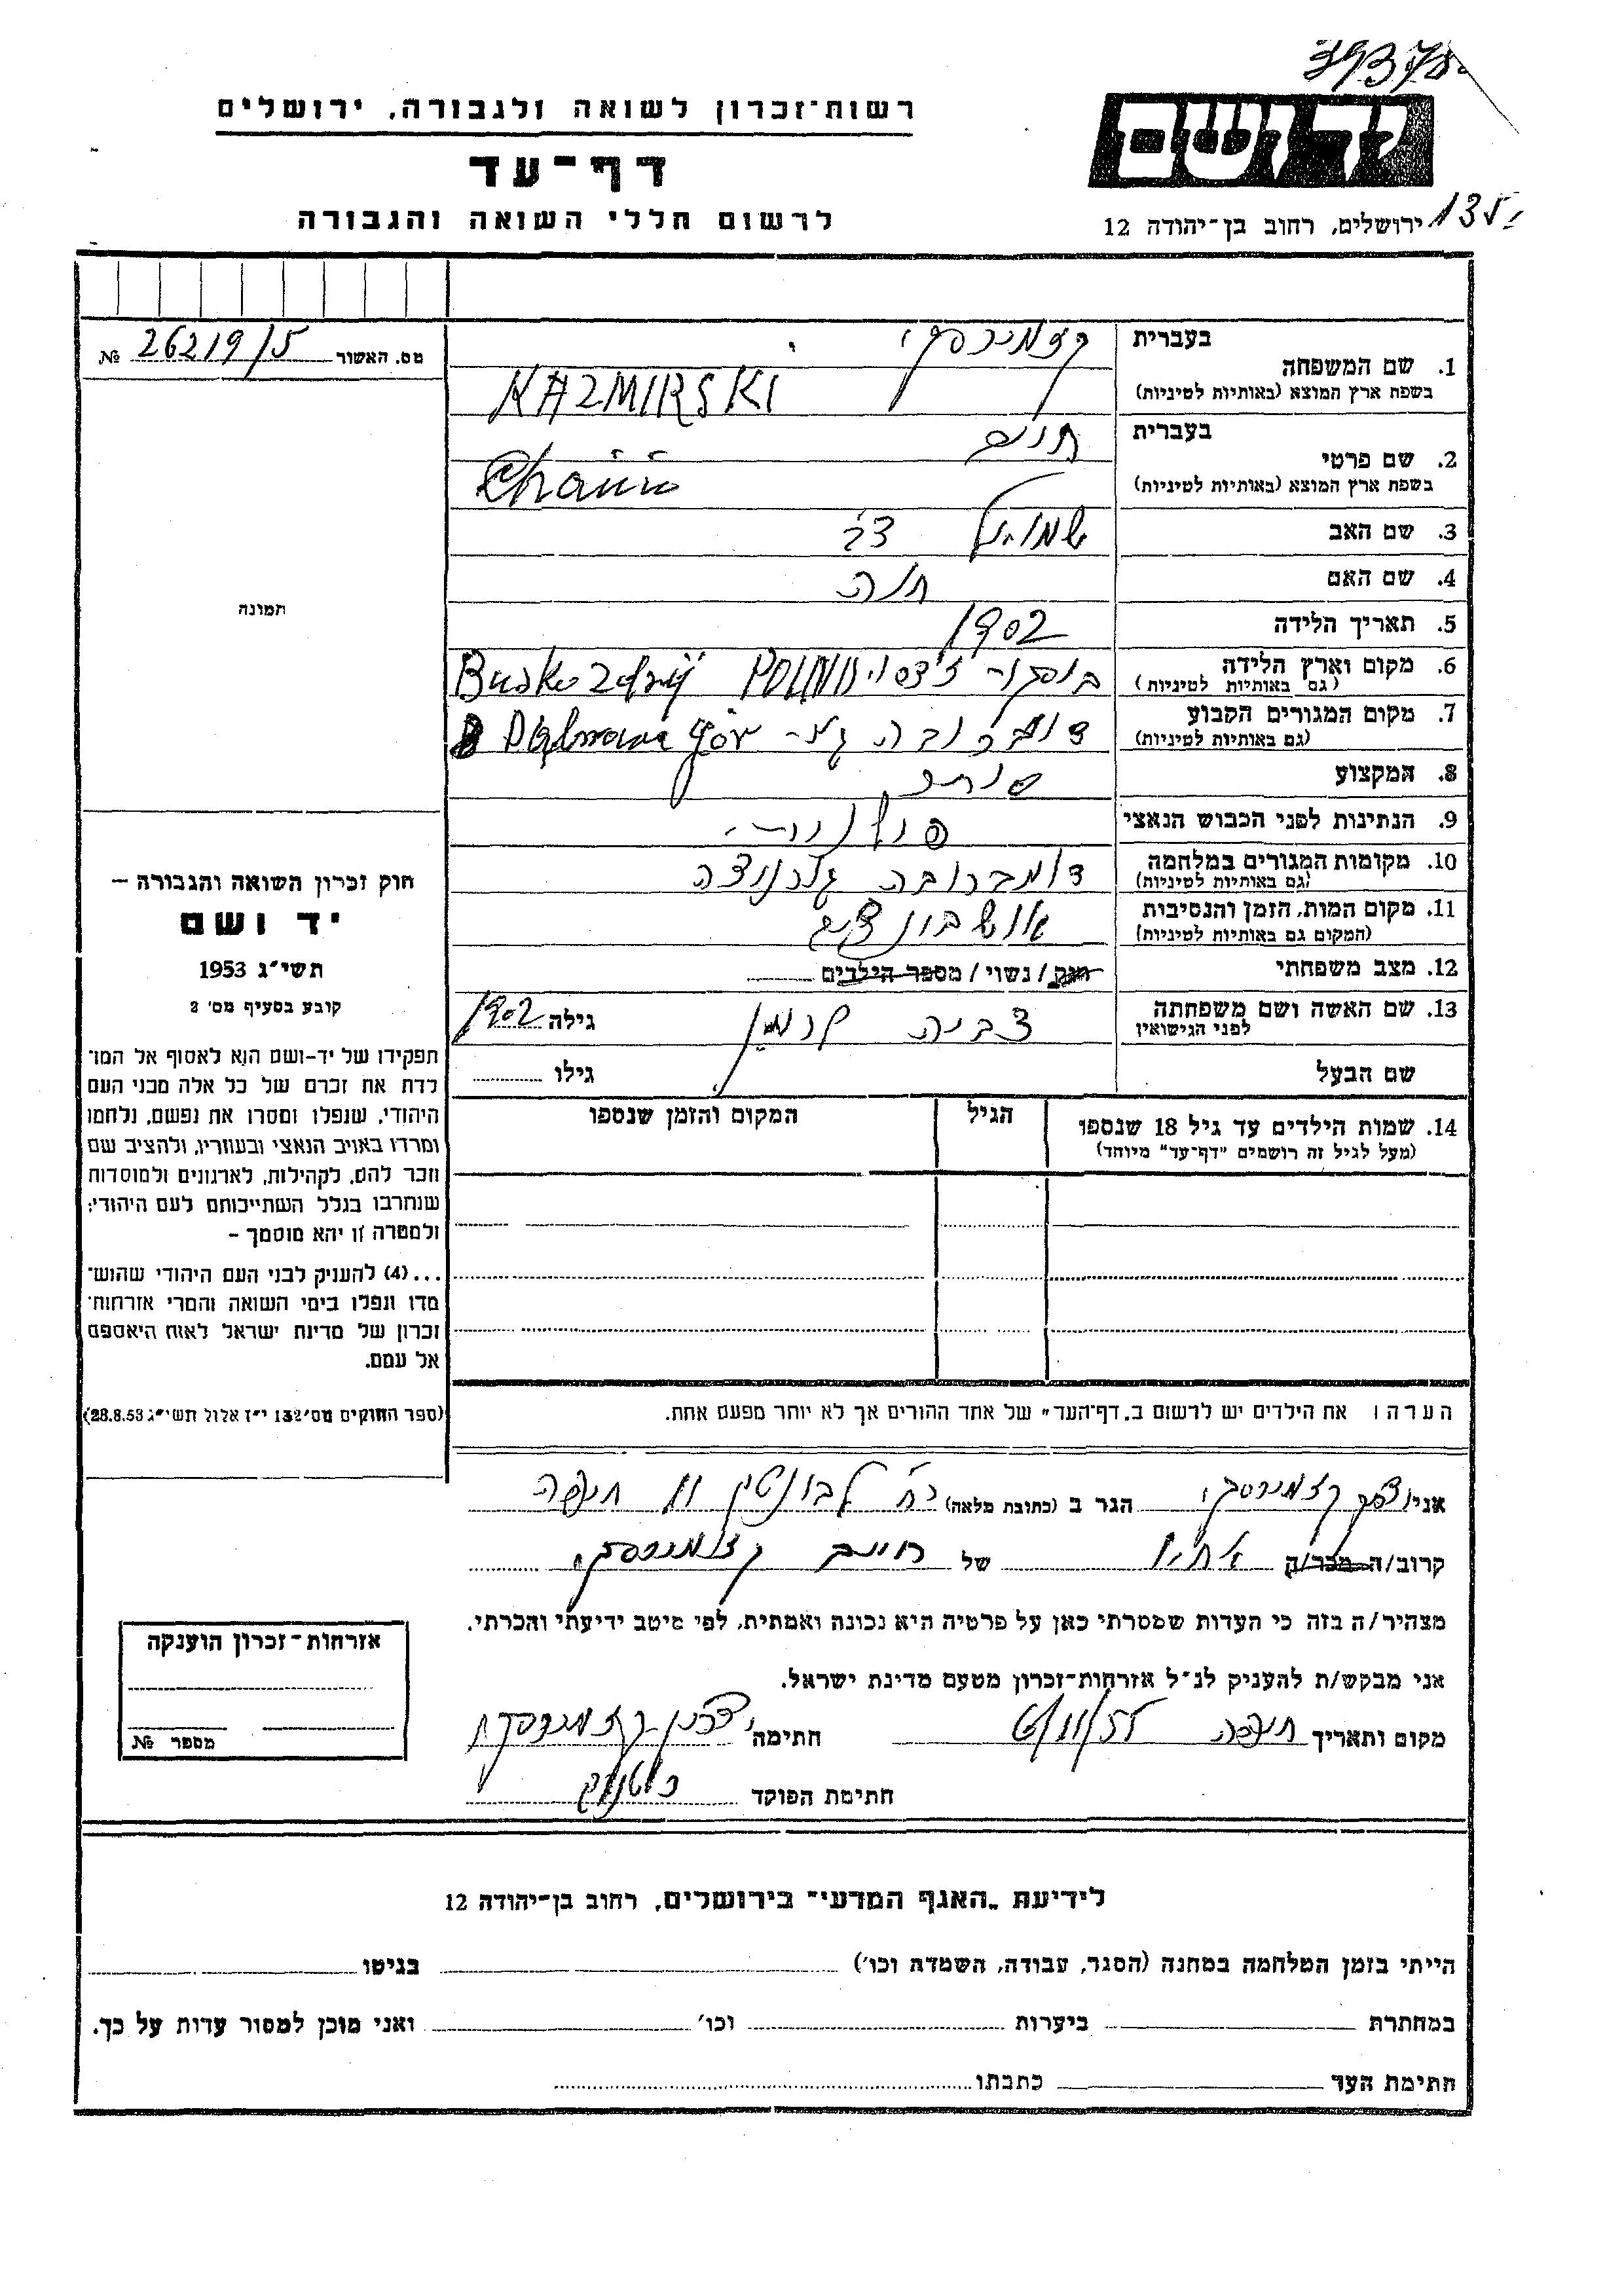 רשות־זכרון לשואה ולגבורה, ירושלים
דף־עד
לרשום חללי השואה והגבורה
ידושם
ירושלים, רחוב בן־יהודה 12
135
מס. האשור 26219/5 №
תמונה
חוק זכרון השואה והגבורה —
יד ושם
תשי״ג 1953
קובע בסעיף מס׳ 2
תפקידו של יד-ושם הוא לאסוף אל המו־
לדת את זכרם של כל אלה מבני העם
היהודי, שנפלו ומסרו את נפשם, נלחמו
ומרדו באויב הנאצי ובעוזריו, ולהציב שם
וזכר להם, לקהילות, לארגונים ולמוסדות
שנחרבו בגלל השתייכותם לעם היהודי;
ולמטרה זו יהא מוסמך —
...(4) להעניק לבני העם היהודי שהוש־
מדו ונפלו בימי השואה והמרי אזרחות־
זכרון של מדינת ישראל לאות היאספם
אל עמם.
(ספר החוקים מס׳ 132 י״ז אלול תשי״ג 28.8.53)
בעברית קזמירסקי
1. שם המשפחה
בשפת ארץ המוצא (באותיות לטיניות) KAZMIRSKI
בעברית חיים
2. שם פרטי
בשפת ארץ המוצא (באותיות לטיניות) Chaim
3. שם האב שמואל צבי
4. שם האם חוה
5. תאריך הלידה 1902
6. מקום וארץ הלידה
(גם באותיות לטיניות) Busko Zdrój
7. מקום המגורים הקבוע דומברובה גור
(גם באותיות לטיניות)
8. המקצוע סוחר
9. הנתינות לפני הכבוש הנאצי פולנית
10. מקומות המגורים במלחמה דומברובה גורניצה
(גם באותיות לטיניות)
11. מקום המות, הזמן והנסיבות אושבנצים
(המקום גם באותיות לטיניות)
12. מצב משפחתי רווק / נשוי / מספר הילדים
13. שם האשה ושם משפחתה גילה 1902
לפני הנישואין
שם הבעל גילו
14. שמות הילדים עד גיל 18 שנספו הגיל המקום והזמן שנספו
(מעל לגיל זה רושמים "דף־עד" מיוחד)
הערה: את הילדים יש לרשום ב„דף־העד״ של אחד ההורים אך לא יותר מפעם אחת.
אני קזמירסקי הגר ב (כתובת מלאה) רח׳ חיפה
קרוב/ה מכר/ה אחיו של חיים קזמירסקי
מצהיר/ה בזה כי העדות שמסרתי כאן על פרטיה היא נכונה ואמתית, לפי מיטב ידיעתי והכרתי.
אני מבקש/ת להעניק לנ״ל אזרחות־זכרון מטעם מדינת ישראל.
מקום ותאריך חיפה חתימה
חתימת הפוקד
אזרחות־זכרון הוענקה
מספר №
לידיעת „האגף המדעי״ בירושלים, רחוב בן־יהודה 12
הייתי בזמן המלחמה במחנה (הסגר, עבודה, השמדה וכו׳) בגיטו
במחתרת ביערות וכו׳ ואני מוכן למסור עדות על כך.
חתימת העד כתבתו